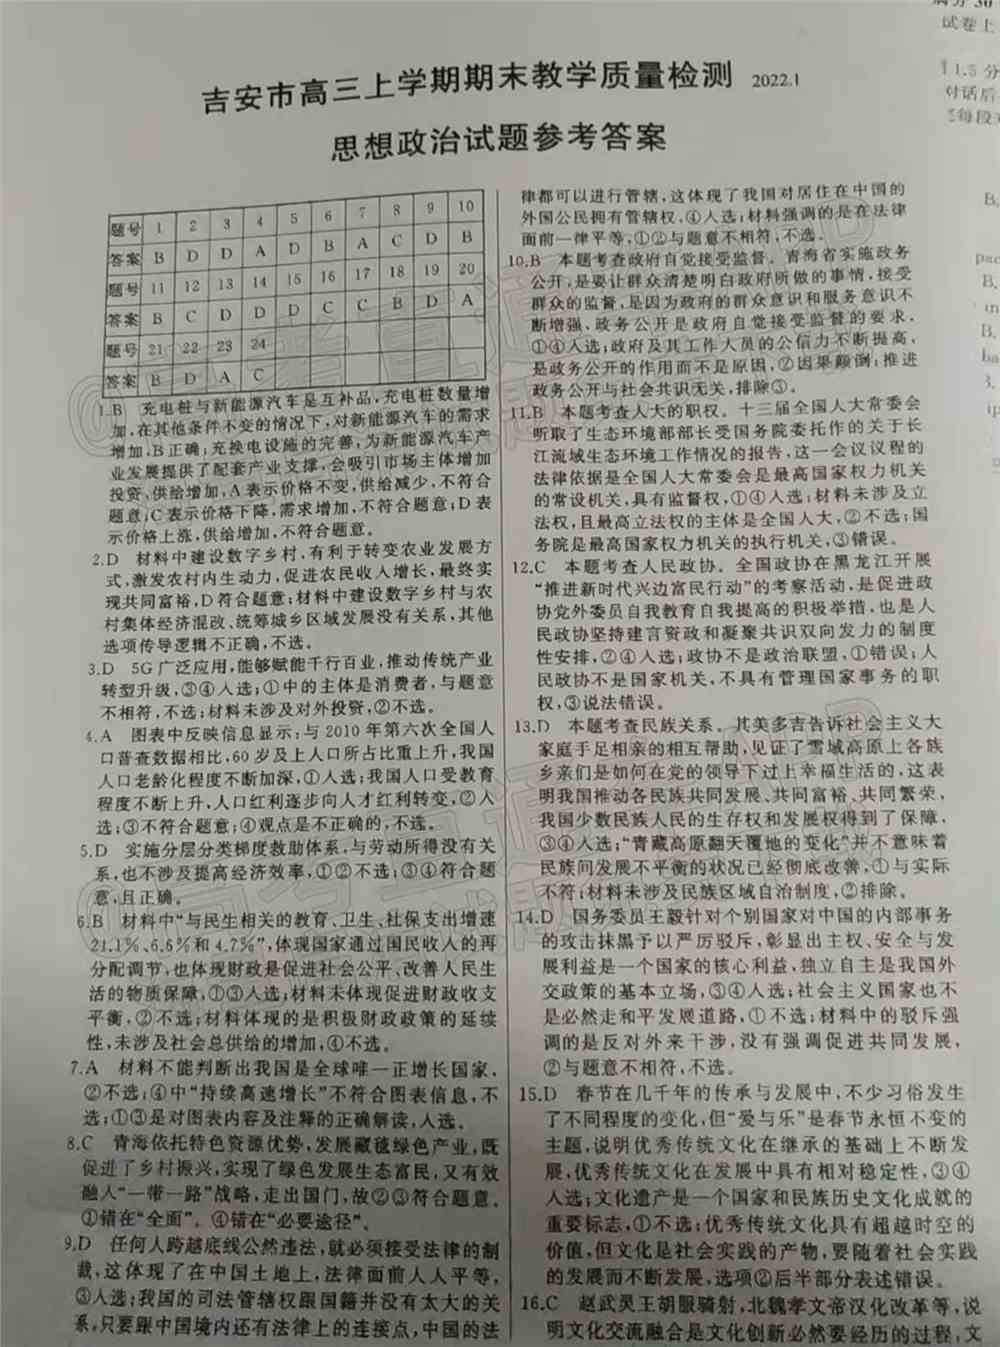 吉安市高三上学期期末教学质量检测 2022.1
思想政治试题参考答案
题号 1 2 3 4 5 6 7 8 9 10
答案 B D D A D B A C D B
题号 11 12 13 14 15 16 17 18 19 20
答案 B C D D D C C B D A
题号 21 22 23 24
答案 B D A C
1.B 充电桩与新能源汽车是互补品,充电桩数量增
加,在其他条件不变的情况下,对新能源汽车的需求
增加,B正确;充换电设施的完善,为新能源汽车产
业发展提供了配套产业支撑,会吸引市场主体增加
投资,供给增加,A表示价格不变,供给减少,不符合
题意;C表示价格下降,需求增加,不符合题意;D表
示价格上涨,供给增加,不符合题意。
2.D 材料中建设数字乡村,有利于转变农业发展方
式,激发农村内生动力,促进农民收入增长,最终实
现共同富裕,D符合题意;材料中建设数字乡村与农
村集体经济混改、统筹城乡区域发展没有关系,其他
选项传导逻辑不正确,不选。
3.D 5G广泛应用,能够赋能千行百业,推动传统产业
转型升级,③④人选;①中的主体是消费者,与题意
不相符,不选;材料未涉及对外投资,②不选。
4.A 图表中反映信息显示:与2010年第六次全国人
口普查数据相比,60岁及上人口所占比重上升,我国
人口老龄化程度不断加深,①人选;我国人口受教育
程度不断上升,人口红利逐步向人才红利转变,②人
选;③不符合题意;④观点是不正确的,不选。
5.D 实施分层分类梯度救助体系,与劳动所得没有关
系,也不涉及提高经济效率,①②不选;③④符合题
意,且正确。
6.B 材料中“与民生相关的教育、卫生、社保支出增速
21.1%、6.6%和4.7%”,体现国家通过国民收人的再
分配调节,也体现财政是促进社会公平、改善人民生
活的物质保障,①③人选;材料未体现促进财政收支
平衡,②不选;材料体现的是积极财政政策的延续
性,未涉及社会总供给的增加,④不选。
7.A 材料不能判断出我国是全球唯一正增长国家,
②不选;④中“持续高速增长”不符合图表信息,不
选;①③是对图表内容及注释的正确解读,人选。
8.C 青海依托特色资源优势,发展藏毯绿色产业,既
促进了乡村振兴,实现了绿色发展生态富民,又有效
融人“一带一路”战略,走出国门,故②③符合题意。
①错在“全面”。④错在“必要途径”。
9.D 任何人跨越底线公然违法,就必须接受法律的制
裁,这体现了在中国土地上,法律面前人人平等,
③人选;我国的司法管辖权跟国籍并没有太大的关
系,只要跟中国境内还有法律上的连接点,中国的法
律都可以进行管辖,这体现了我国对居住在中国的
外国公民拥有管辖权,④人选;材料强调的是在法律
面前一律平等,①②与题意不相符,不选。
10.B 本题考查政府自觉接受监督。青海省实施政务
公开,是要让群众清楚明白政府所做的事情,接受
群众的监督,是因为政府的群众意识和服务意识不
断增强、政务公开是政府自觉接受监督的要求,
①④人选;政府及其工作人员的公信力不断提高,
是政务公开的作用而不是原因,②因果颠倒;推进
政务公开与社会共识无关,排除③。
11.B 本题考查人大的职权。十三届全国人大常委会
听取了生态环境部部长受国务院委托作的关于长
江流域生态环境工作情况的报告,这一会议议程的
法律依据是全国人大常委会是最高国家权力机关
的常设机关,具有监督权,①④人选;材料未涉及立
法权,且最高立法权的主体是全国人大,②不选;国
务院是最高国家权力机关的执行机关,③错误。
12.C 本题考查人民政协。全国政协在黑龙江开展
“推进新时代兴边富民行动”的考察活动,是促进政
协党外委员自我教育自我提高的积极举措,也是人
民政协坚持建言资政和凝聚共识双向发力的制度
性安排,②④人选;政协不是政治联盟,①错误;人
民政协不是国家机关,不具有管理国家事务的职
权,③说法错误。
13.D 本题考查民族关系。其美多吉告诉社会主义大
家庭手足相亲的相互帮助,见证了雪域高原上各族
乡亲们是如何在党的领导下过上幸福生活的,这表
明我国推动各民族共同发展、共同富裕、共同繁荣,
我国少数民族人民的生存权和发展权得到了保障,
③④人选;“青藏高原翻天覆地的变化”并不意味着
民族间发展不平衡的状况已经彻底改善,①与实际
不符;材料未涉及民族区域自治制度,②排除。
14.D 国务委员王毅针对个别国家对中国的内部事务
的攻击抹黑予以严厉驳斥,彰显出主权、安全与发
展利益是一个国家的核心利益,独立自主是我国外
交政策的基本立场,③④人选;社会主义国家也不
是必然走和平发展道路,①不选;材料中的驳斥强
调的是反对外来干涉,没有强调促进共同发展,
②与题意不相符,不选。
15.D 春节在几千年的传承与发展中,不少习俗发生
了不同程度的变化,但“爱与乐”是春节永恒不变的
主题,说明优秀传统文化在继承的基础上不断发
展,优秀传统文化在发展中具有相对稳定性,③④
人选;文化遗产是一个国家和民族历史文化成就的
重要标志,①不选;优秀传统文化具有超越时空的
价值,但文化是社会实践的产物,要随着社会实践
的发展而不断发展,选项②后半部分表述错误。
16.C 赵武灵王胡服骑射,北魏孝文帝汉化改革等,说
明文化交流融合是文化创新必然要经历的过程,文
试卷上
1.5分
对话后
每段
B.
pac
B.
in
ba
3.